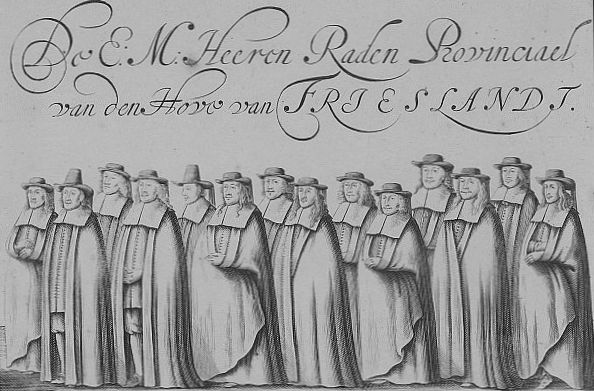 De E: M: Heeren Raden Provinciael
van den Hove van FRIESLANDT.